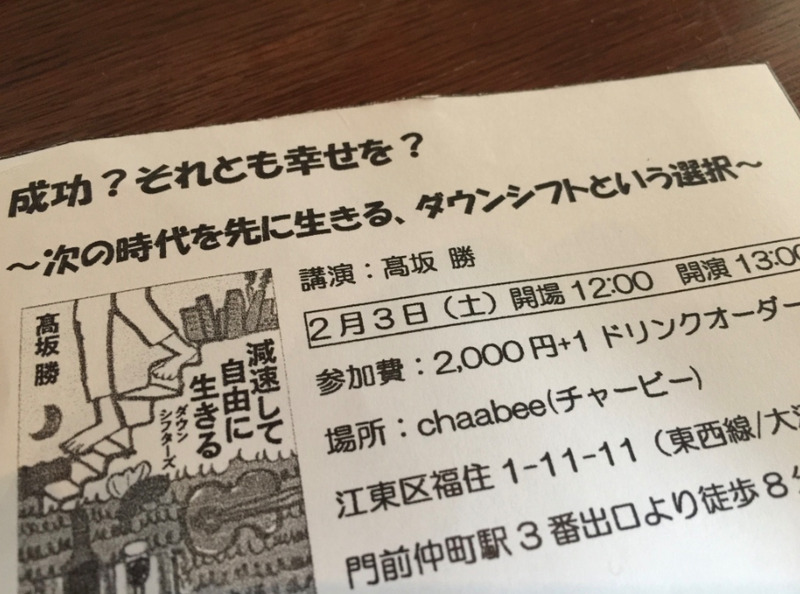 成功？それとも幸せを？
～次の時代を先に生きる、ダウンシフトという選択～
講演：髙坂 勝
2月3日（土）開場12:00 開演13:00
参加費：2,000円+1 ドリンクオーダー
場所：chaabee(チャービー)
江東区福住1-11-11（東西線/大
門前仲町駅3番出口より徒歩8分
髙坂勝
減速して
自由に
生きる
ダウン
シフターズ